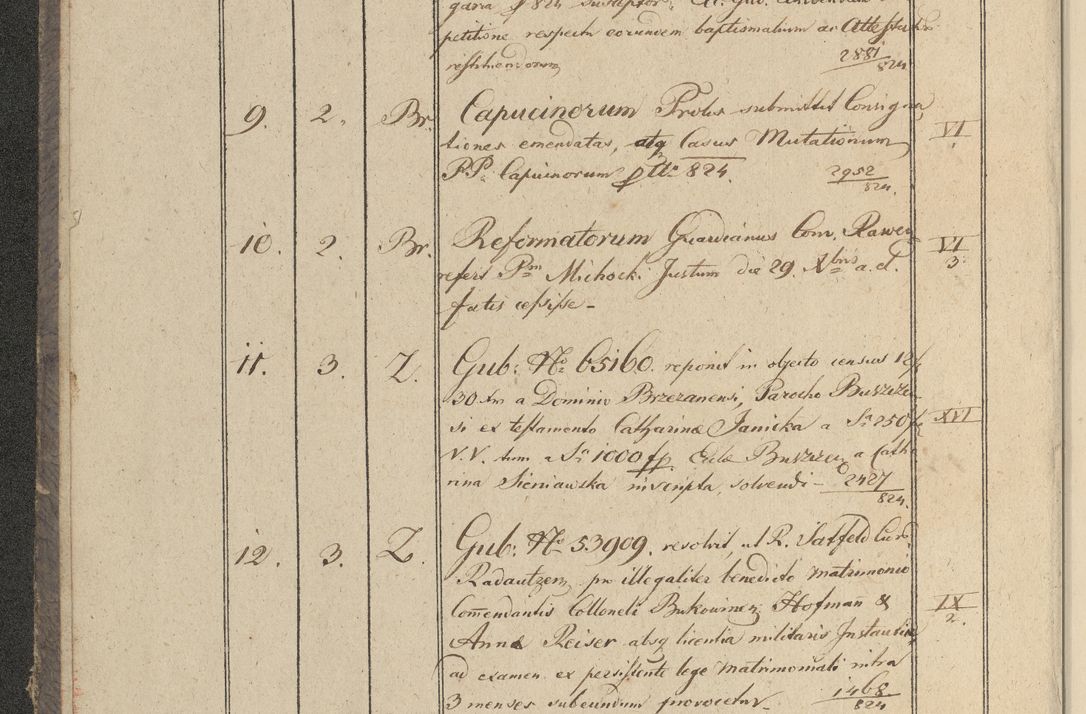 petitione respectu eorundem baptismalium ac Attestat
restituendorum 2881/824
9. 2. Br. Capucinorum Prolus submittit Consigna
tiones emendatas, atq Casus Mutationum VI/1
P.P. Capucinorum p 824. 2952/824.
10. 2. Br. Reformatorum Guardianus Con. Rawen VI/3
refert Pm Michocki Justum die 29. Xbris a. d.
fatis cessisse –
11. 3. Z. Gub: No 65160. reponit in objecto census 12 f
30 xr a Dominio Brzezanensi, Parocho Buszcze
si ex testamento Catharinæ Janicka a Sa 250 f XVI
V.V. tum a Sa 1000 fp Eccle Buszcze a Catha
rina Sieniawska inscripta, solvendi – 2427/824.
12. 3. Z. Gub: No 53909. resolvit, ut R. Satfeld Cur
Radautzen, pro illegaliter benedicto matrimonio
Com̄endantis Colloneli Bukowinen Hofmann & IX/2.
Annæ Reiser absq licentia militaris Instantiæ
ad examen ex persistenti lege matrimoniali intra
3 menses subeundum provocetur – 1468/824